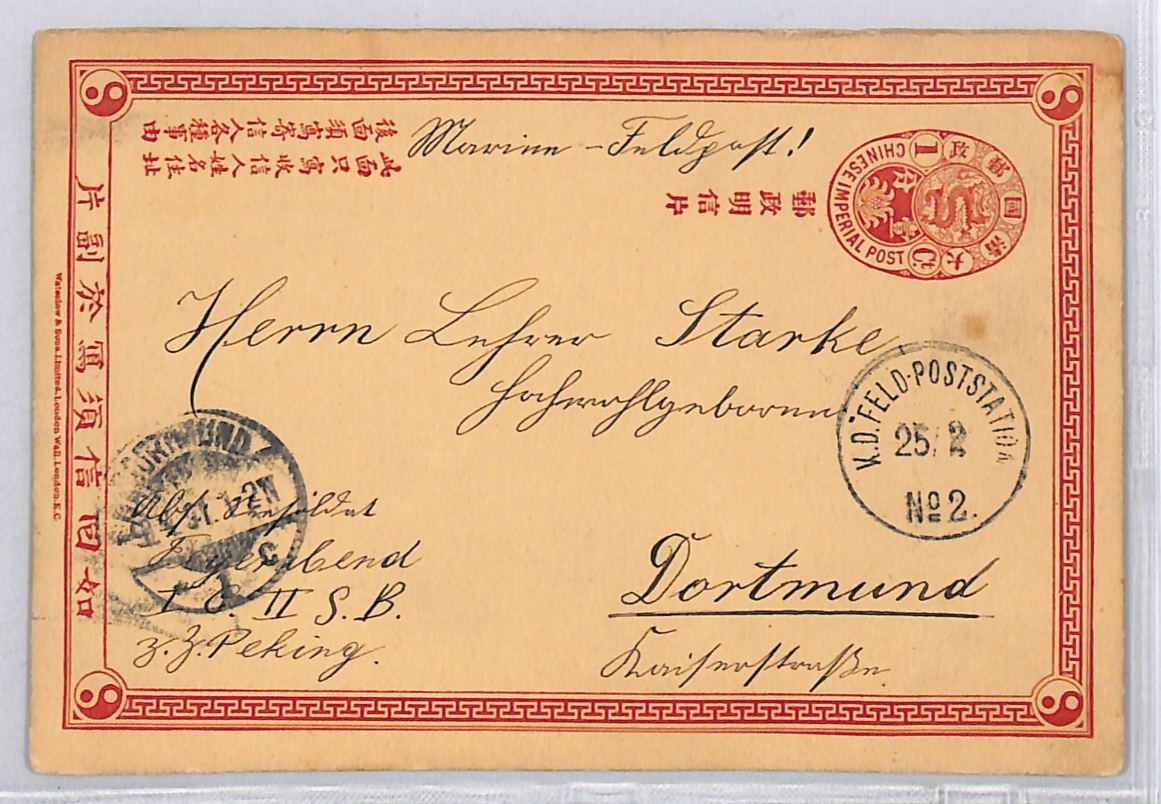 Marine-Feldpost!
此面只寫收信人姓名住址
後面須寫寄信人各種事由
郵政明信片
大清國郵政
CHINESE IMPERIAL POST
1 Ct.
片副於寫須信回如
Waterlow & Sons Limited. London Wall, London, E.C.
Herrn Lehrer Starke
Hochwohlgeboren
K.D. FELD-POSTSTATION
25/2
No 2.
DORTMUND
Abs. Seesoldat
Feyerabend
I C II S.B.
z. Z. Peking.
Dortmund
Kaiserstraße.